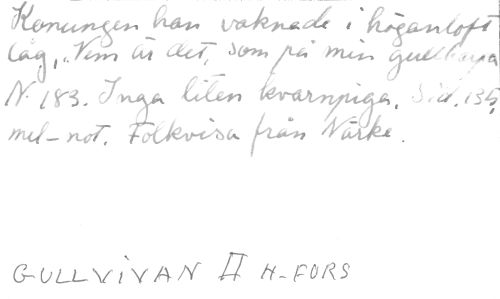 Konungen han vaknade i höganloft
låg, "Vem är det, som på min gullharpa
N. 183. Inga liten kvarnpiga. Sid. 135,
mel-not. Folkvisa från Närke.
GULLVIVAN II H-FORS